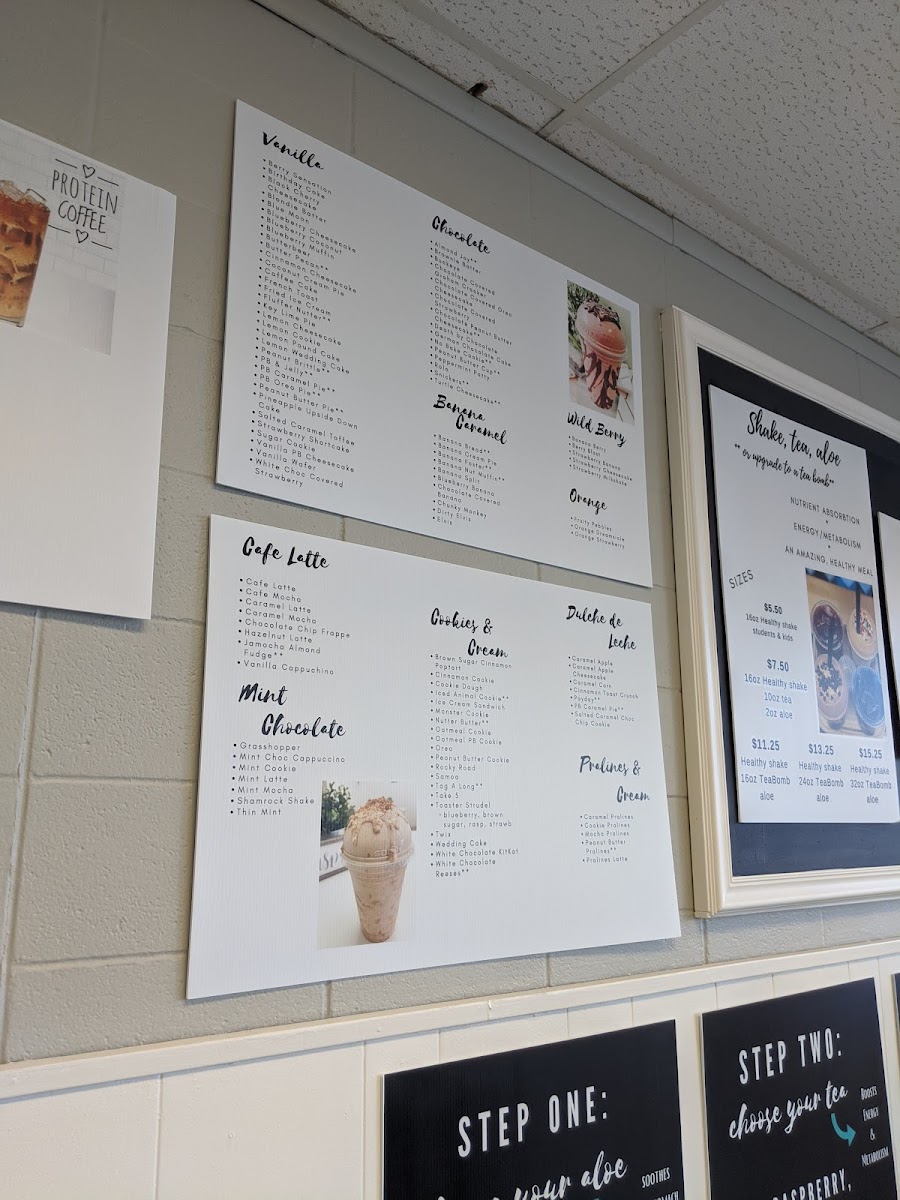 PROTEIN
COFFEE
Vanilla
• Berry Sensation
• Birthday Cake
• Black Cherry
Cheesecake
• Blondie Batter
• Blue Moon
• Blueberry Cheesecake
• Blueberry Coconut
• Blueberry Muffin
• Butterbeer
• Butter Pecan**
• Cinnamon Cheesecake
• Coconut Cream Pie
• Coffee Cake
• French Toast
• Fried Ice Cream
• Fluffer Nutter**
• Key Lime Pie
• Lemon Cheesecake
• Lemon Cookie
• Lemon Pound Cake
• Lemon Wedding Cake
• Peanut Brittle**
• PB & Jelly**
• PB Caramel Pie**
• PB Oreo Pie**
• Peanut Butter Pie**
• Pineapple Upside Down
Cake
• Salted Caramel Toffee
• Strawberry Shortcake
• Sugar Cookie
• Vanilla PB Cheesecake
• Vanilla Wafer
• White Choc Covered
Strawberry
Chocolate
• Almond Joy**
• Brownie Batter
• Buckeye
• Chocolate Covered
Graham Cracker
• Chocolate Covered Oreo
Cheesecake
• Chocolate Covered
Strawberry
• Chocolate Peanut Butter
Cheesecake**
• Death by Chocolate
• German Chocolate Cake
• No Bake Cookie**
• Peanut Butter Cup**
• Peppermint Patty
• Rolo
• Snickers**
• Turtle Cheesecake**
Banana
Caramel
• Banana Bread**
• Banana Cream Pie
• Banana Foster**
• Banana Nut Muffin**
• Banana Split
• Blueberry Banana
• Chocolate Covered
Banana
• Chunky Monkey
• Dirty Elvis
• Elvis
Wild Berry
• Banana Berry
• Berry Blast
• Strawberry Banana
• Strawberry Cheesecake
• Strawberry Milkshake
Orange
• Fruity Pebbles
• Orange Dreamsicle
• Orange Strawberry
Cafe Latte
• Cafe Latte
• Cafe Mocha
• Caramel Latte
• Caramel Mocha
• Chocolate Chip Frappe
• Hazelnut Latte
• Jamocha Almond
Fudge**
• Vanilla Cappuchino
Mint
Chocolate
• Grasshopper
• Mint Choc Cappuccino
• Mint Cookie
• Mint Latte
• Mint Mocha
• Shamrock Shake
• Thin Mint
Cookies &
Cream
• Brown Sugar Cinnamon
Poptart
• Cinnamon Cookie
• Cookie Dough
• Iced Animal Cookie**
• Ice Cream Sandwich
• Monster Cookie
• Nutter Butter**
• Oatmeal Cookie
• Oatmeal PB Cookie
• Oreo
• Peanut Butter Cookie
• Rocky Road
• Samoa
• Tag A Long**
• Take 5
• Toaster Strudel
◦ blueberry, brown
sugar, rasp, strawb
• Twix
• Wedding Cake
• White Chocolate KitKat
• White Chocolate
Reeses**
Dulche de
Leche
• Caramel Apple
• Caramel Apple
Cheesecake
• Caramel Corn
• Cinnamon Toast Crunch
• Payday**
• PB Caramel Pie**
• Salted Caramel Choc
Chip Cookie
Pralines &
Cream
• Caramel Pralines
• Cookie Pralines
• Mocha Pralines
• Peanut Butter
Pralines**
• Pralines Latte
Shake, tea, aloe
** or upgrade to a tea bomb**
NUTRIENT ABSORBTION
+
ENERGY/METABOLISM
+
AN AMAZING, HEALTHY MEAL
SIZES
$5.50
16oz Healthy shake
students & kids
$7.50
16oz Healthy shake
10oz tea
2oz aloe
$11.25
Healthy shake
16oz TeaBomb
aloe
$13.25
Healthy shake
24oz TeaBomb
aloe
$15.25
Healthy shake
32oz TeaBomb
aloe
STEP ONE:
your aloe
SOOTHES
STEP TWO:
choose your tea
BOOSTS
ENERGY
&
METABOLISM
RASPBERRY,